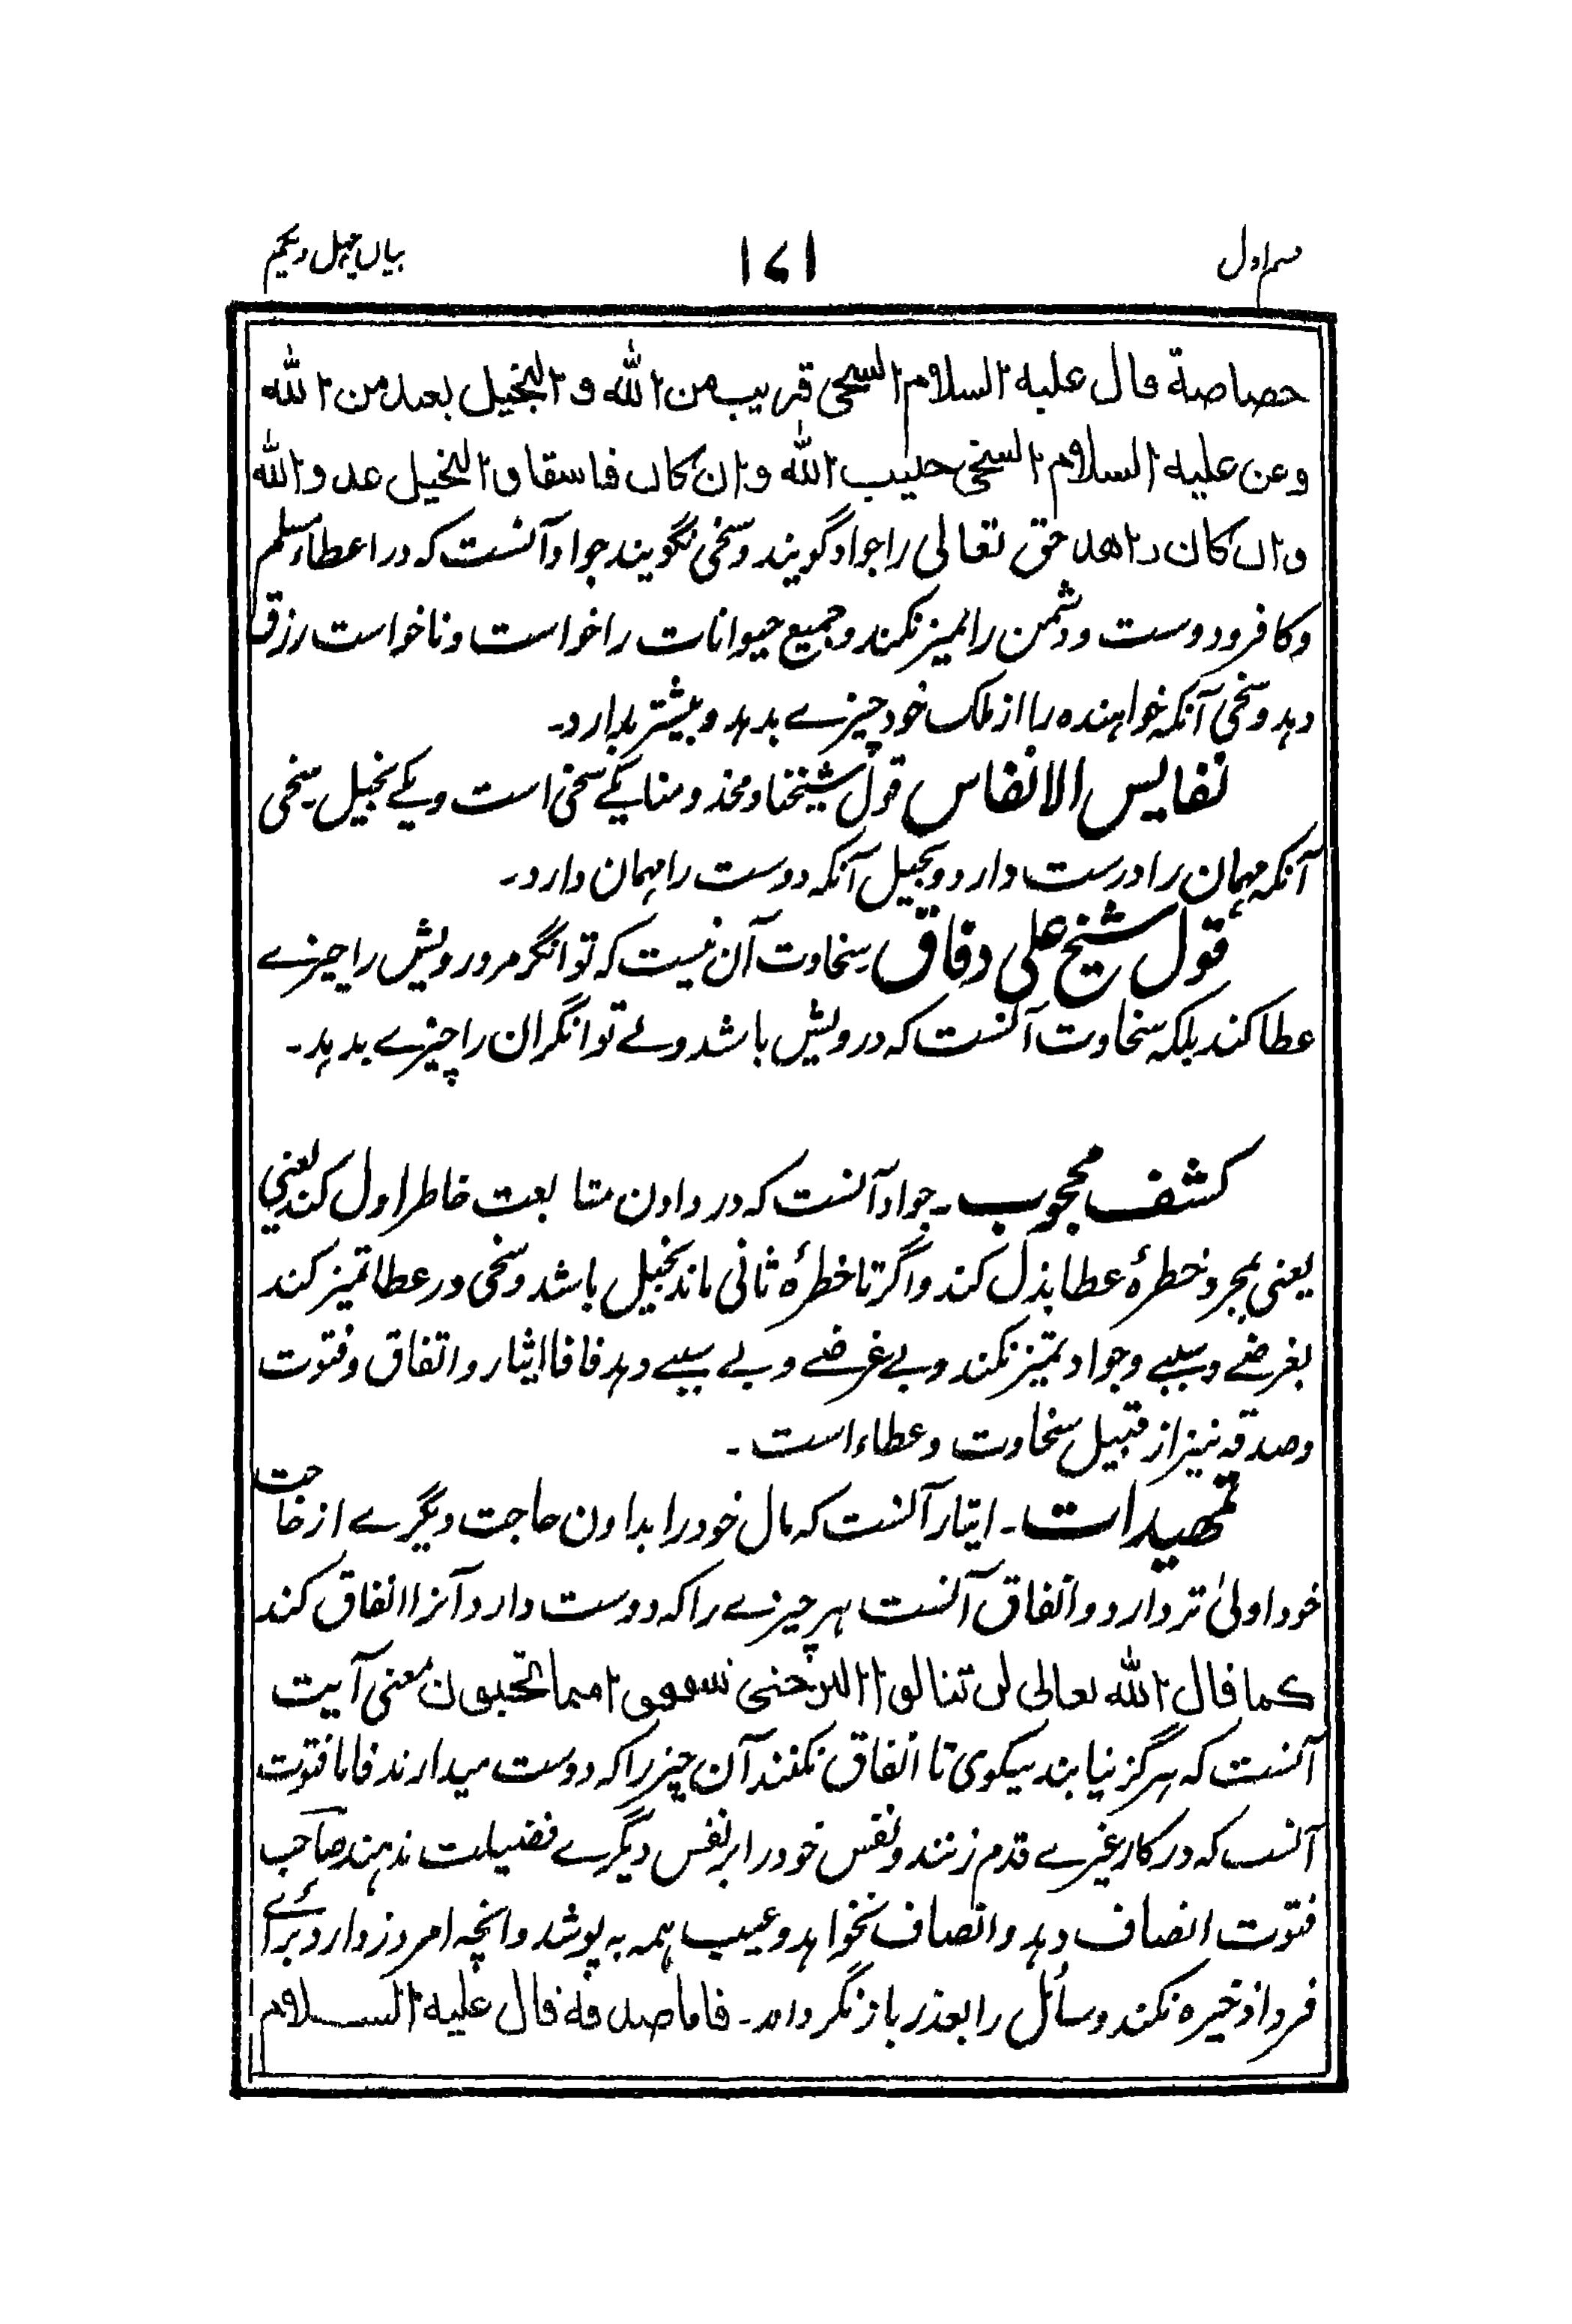 قسم اول ۱۷۱ بیان چهل و یکم
خصاصة قال علیه السلام السخی قریب من الله و البخیل بعید من الله
وعن علیه السلام السخی حبیب الله وان کان فاسقا و البخیل عدو الله
وان کان زاهد حق تعالی را جواد گویند و سخی نگویند جواد آنست که در اعطا مسلم
و کافر و دوست و دشمن را تمیز نکند و جمیع حیوانات را خواست و ناخواست رزق
دهد و سخی آنکه خواهنده را از ملک خود چیزے بدهد و بیشتر بدارد۔
نفایس الانفاس قول شیخنا و مخدومنا یکے سخی است و یکے بخیل سخی
آنکه مهمان را درست دارد و بخیل آنکه دوست را مهمان دارد۔
قول شیخ علی دقاق سخاوت آن نیست که توانگر مر درویش را چیزے
عطا کند بلکه سخاوت آنست که درویش باشد و لے توانگران را چیزے بدهد۔
کشف محجوب۔ جواد آنست که در دادن متابعت خاطر اول کند یعنی
یعنی بمجرد خطرۂ عطا بذل کند و اگر تا خطرۂ ثانی ماند بخیل باشد و سخی در عطا تمیز کند
بغرضے و سببے و جواد تمیز نکند و بے غرضے و بے سببے دهد فاما ایثار و اتفاق و فتوت
وصدقه نیز از قبیل سخاوت و عطاء است۔
تمهیدات۔ ایثار آنست که مال خود را بدادن حاجت دیگرے از حاجت
خود اولیٰ تر دارد و انفاق آنست هر چیزے را که دوست دارد آنرا انفاق کند
کما قال الله تعالی لن تنالوا البر حتی تنفقوا مما تحبون معنی آیت
آنست که هرگز نیابند نیکوی تا انفاق نکنند آن چیز را که دوست میدارند فاما فتوت
آنست که در کار غیرے قدم زنند و نفس خود را بر نفس دیگرے فضیلت ندهند صاحب
فتوت انصاف دهد و انصاف نخواهد و عیب همه به پوشد و انچه امروز دارد برائے
فردا ذخیره نکند و سائل را بعذر باز نگرداند۔ فاما صدقه قال علیه السلام